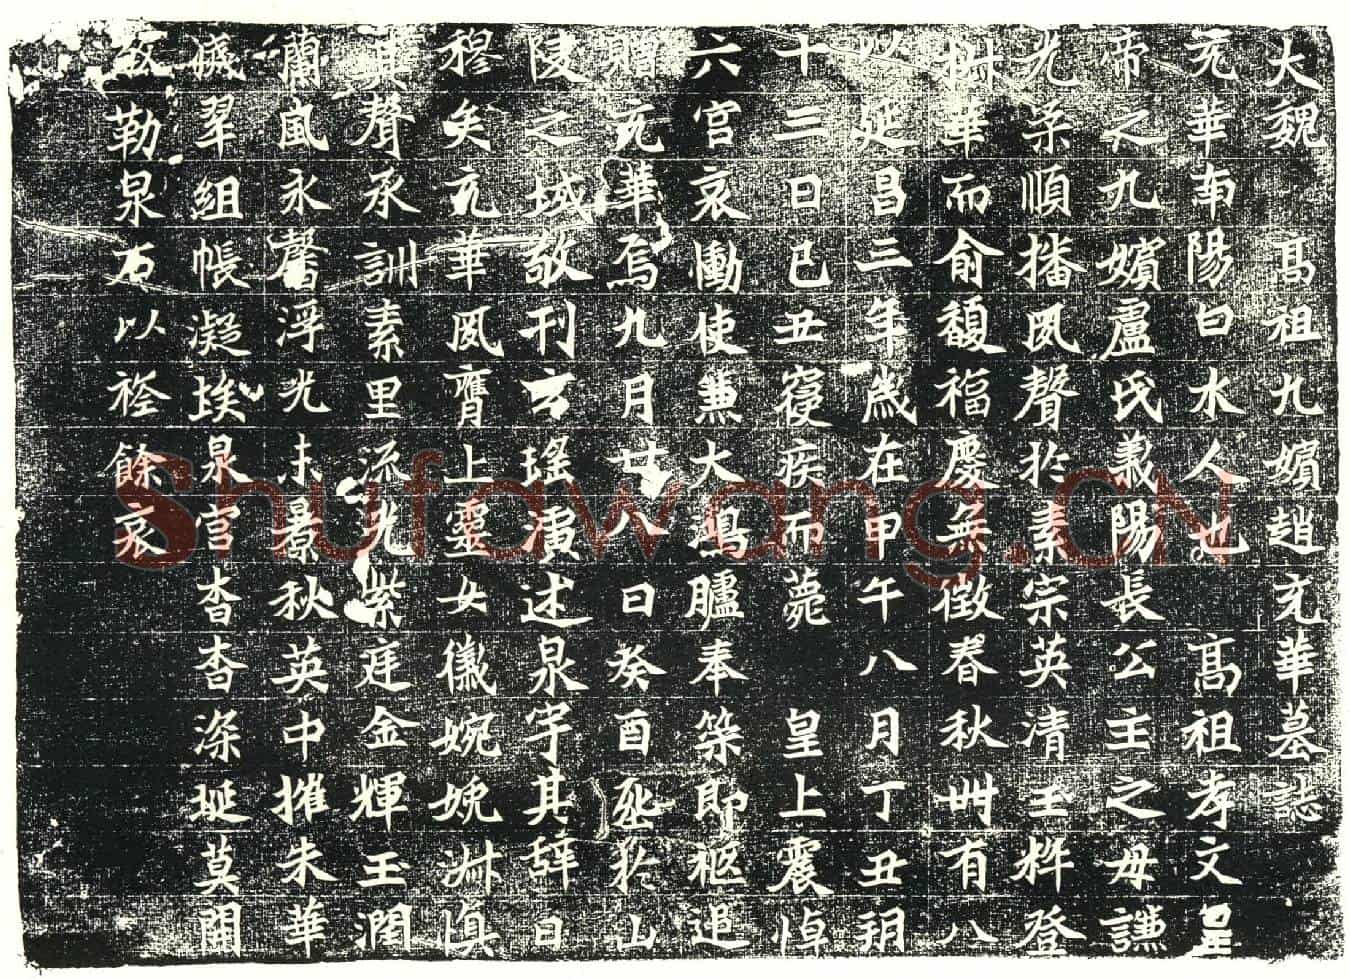 大魏 高祖九嬪趙充華墓誌
充華南陽白水人也 高祖孝文皇
帝之九嬪盧氏義陽長公主之母謙
光柔順播夙聲於素宗英清玉粹登
樹華而俞馥福慶無徵春秋卌有八
以延昌三年歲在甲午八月丁丑朔
十三日己丑寢疾而薨 皇上震悼
六宮哀慟使兼大鴻臚奉策即柩追
贈充華焉九月廿八日癸酉丞於山
陵之域敬刊玄瑤演述泉宇其辭曰
穆矣充華夙膺上靈女徽婉娩淑慎
其聲承訓素里流光紫庭金輝玉潤
蘭風永馨浮光未景秋英中摧朱華
滅翠組帳凝埃泉宮杳杳深埏莫開
敬勒泉石以袶餘哀
Shufawang.CN